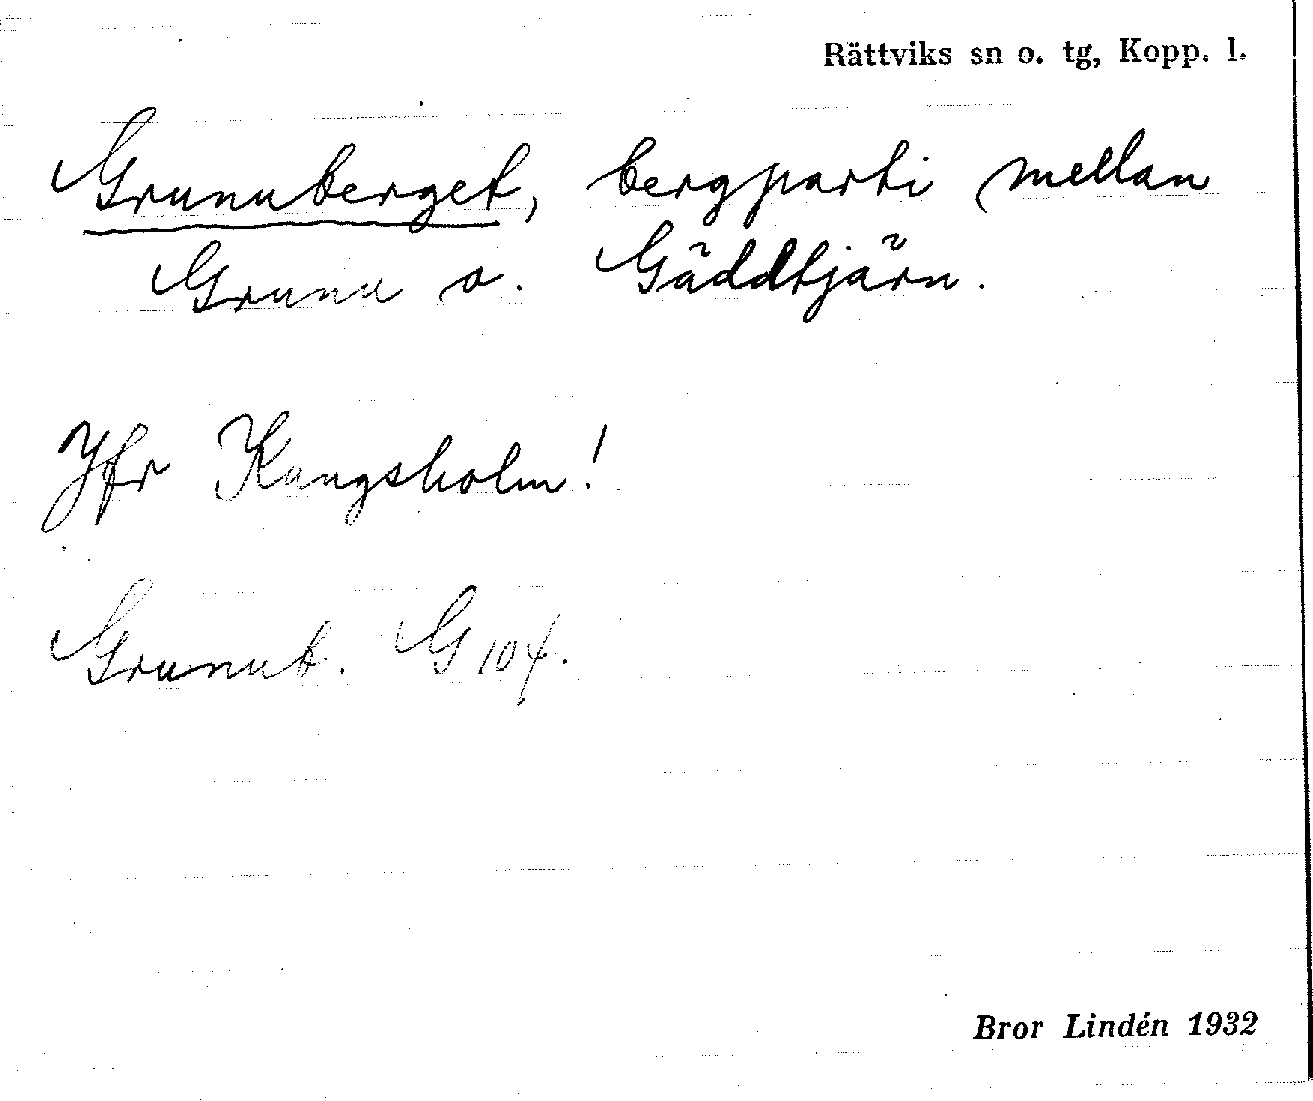 Rättviks sn o. tg, Kopp. l.
Grunuberget, bergparti mellan
Grunu o. Gäddtjärn.
Jfr Kungsholm!
Grunub. G 104.
Bror Lindén 1932